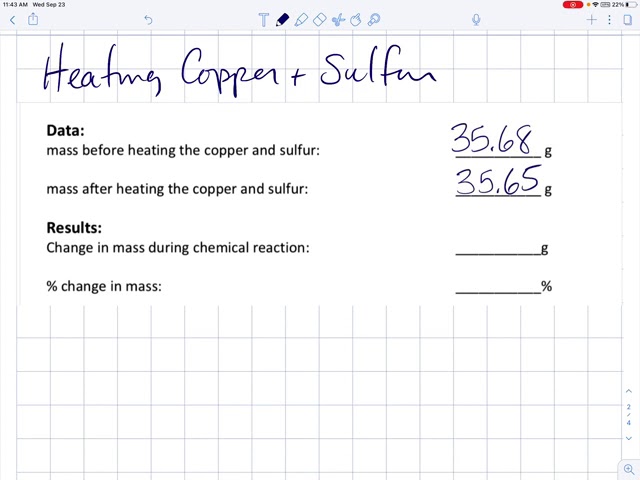 11:43 AM Wed Sep 23
22%
T
Heating Copper + Sulfur
Data:
mass before heating the copper and sulfur: 35.68 g
mass after heating the copper and sulfur: 35.65 g
Results:
Change in mass during chemical reaction: __________g
% change in mass: __________%
2
/
4